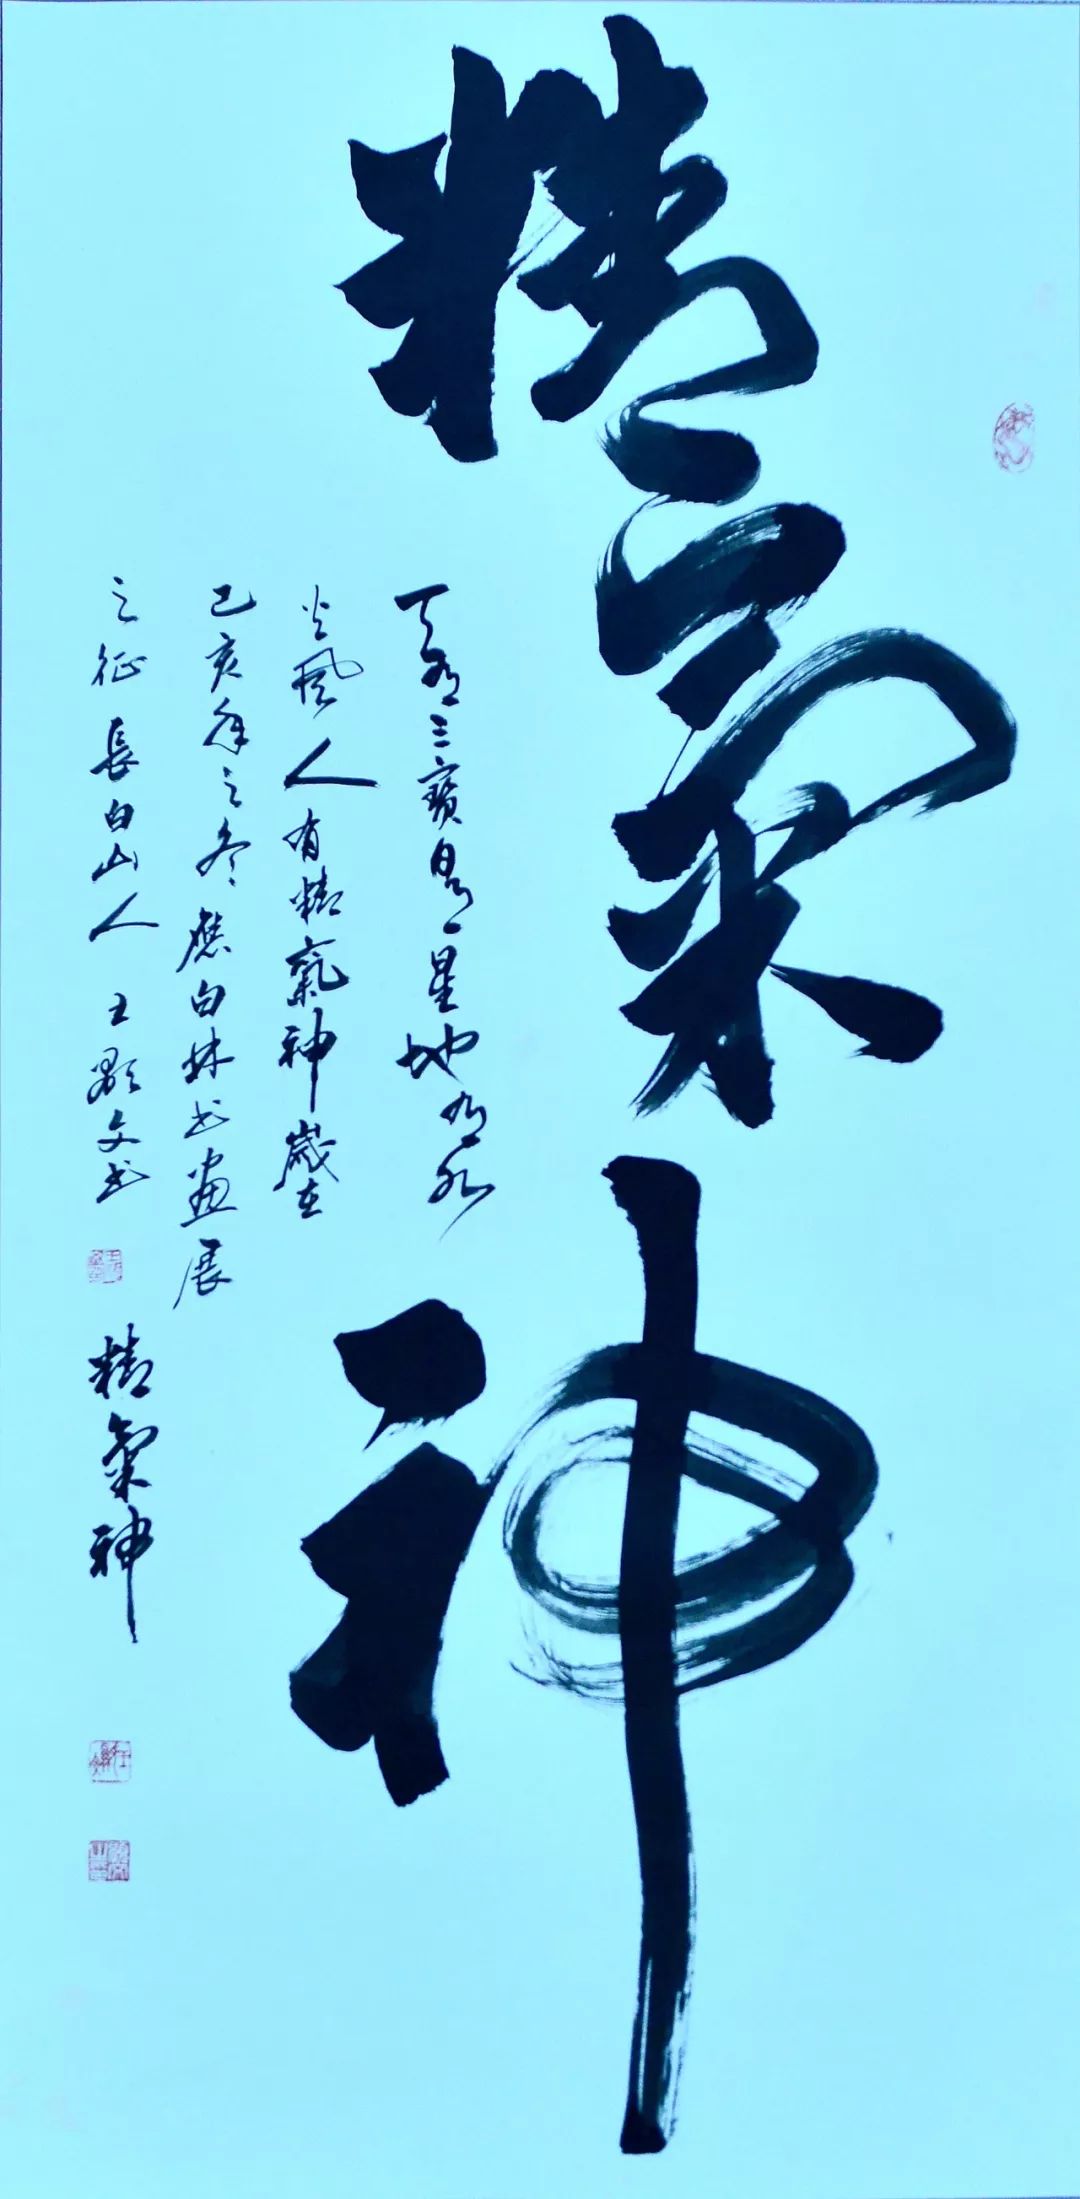 精氣神
天有三寶日月星地有水
火風人有精氣神歲在
己亥年之冬應白林书画展
之征長白山人王顯文书
精氣神